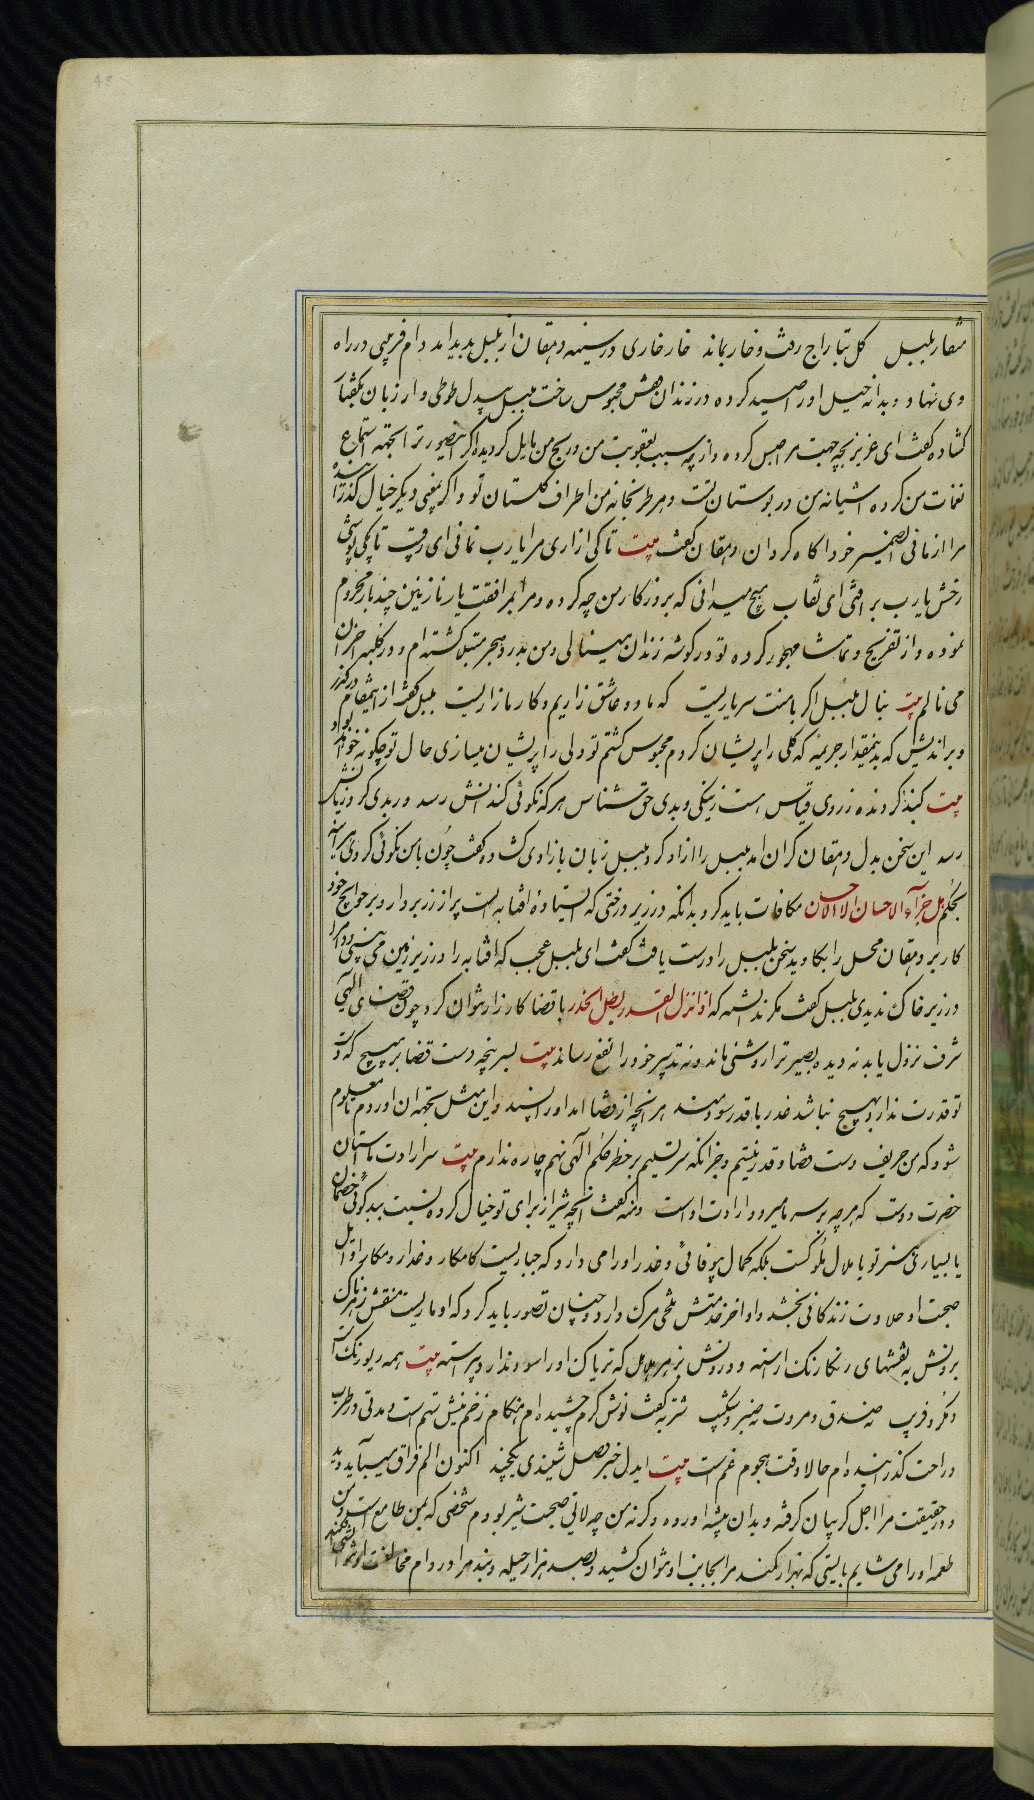 منقار بلبل گل بتاراج رفت و خار بماند خار خاری در سینه دهقان از بلبل پدید آمد دام فریبی در راه
وی نهاد و بدانه حیل او را صید کرده در زندان قفس محبوس ساخت بلبل بیدل طوطی وار زبان بگفتار
گشاده گفت ای عزیز بچه جهت مرا حبس کرده و از چه سبب بعقوبت من مایل گردیده اگر اینصورت را بجهت استماع
نغمات من کرده آشیانه من در بوستان تست و طربخانه من اطراف گلستان تو و اگر معنی دیگر بخیال گذرانیده
مرا از مافی الضمیر خود آگاه گردان دهقان گفت بیت تا کی آزاری مرا یا رب نمانی ای رقیب تا کی پوشی
رخش یا رب برافتی ای نقاب هیچ میدانی که بروزگار من چه کرده و مرا بمرافقت یار نازنین چند بار محروم
نموده و از تفریح و تماشا مهجور کرده تو در گوشه زندان مینالی و من بدرد هجر مبتلا گشته ام و در کلبه احزان
می نالم بیت بنال بلبل اگر با منت سر یاریست که ما دو عاشق زاریم و کار ما زاریست بلبل گفت از اینمقام درگذر
و براندیش که بدینمقدار جریمه که گلی را پریشان کردم محبوس گشتم تو دلی را پریشان میسازی حال تو چگونه خواهد بود
بیت گنبد گردنده ز روی قیاس هست به نیکی و بدی حق شناس هر که نکوئی کند آنش رسد ور بدی کرد زیانش
رسد این سخن بدل دهقان گران آمد بلبل را آزاد کرد بلبل زبان بآزادی گشود و گفت چون با من نکوئی کردی هر آینه
بحکم هل جزآء الاحسان الا الاحسان مکافات باید کرد بدانکه در زیر درختی که ایستاده آفتابه است پر از زر بردار و بر حوایج خود
کار بر دهقان محل را بکاوید سخن بلبل را درست یافت گفت ای بلبل عجب که آفتابه را در زیر زمین می بینی و دام را
در زیر خاک ندیدی بلبل گفت مگر ندانسته که اذا نزل القدر بطل الحذر با قضا کارزار نتوان کرد چون قضای الهی
شرف نزول یابد نه دیده بصیر ترا روشنی ماند و نه تدبیر خرد را نفع رساند بیت بسر پنجه دست قضا بر مپیچ که دست
تو قدرت ندارد بهیچ نباشد حذر با قدر سودمند هر آنچه از قضا آمد آور پسند و این مثل بجهت آن آوردم تا معلوم
شود که من حریف دست قضا و قدر نیستم و جز آنکه سر تسلیم بر خط حکم الهی نهم چاره ندارم بیت سر ارادت ما و آستان
حضرت دوست که هر چه بر سر ما میرود ارادت اوست دمنه گفت آنچه شیر از برای تو خیال کرده نسبت ببدگوئی خصمان
یا بسیاری هنر تو یا ملال ملوکست بلکه کمال بیوفائی و غدر او را می دارد که جباریست کامکار و غدار و مکار اوایل
صحبت او حلاوت زندگانی بخشد و اواخر خدمتش تلخی مرگ دارد چنان تصور باید کرد که او ماریست منقش زهرناک
بیرونش به نقشهای رنگارنگ آراسته و درونش بزهر هلاهل که تریاک او را سود ندارد پیراسته بیت همه ریو و رنگست
و مکر و فریب نه صدق و مروت نه صبر و شکیب شنزبه گفت نوش کرم چشیده ام هنگام زخم نیش ستم است و مدتی در طرب
و راحت گذرانیده ام حالا وقت هجوم غم است بیت ایدل خبر وصل شنیدی یکچند اکنون الم فراق میباید دید
و در حقیقت مرا اجل گریبان گرفته و بدان بیشه آورده و گرنه من چه لایق صحبت شیر بودم شخصی که بمن طامع است و من
طعمه او را می شایم بایستی که بهزار کمند مرا بجانب او نتوان کشید و بصد هزار حیله و بند مرا در دام مخالفت او نتوان افکند